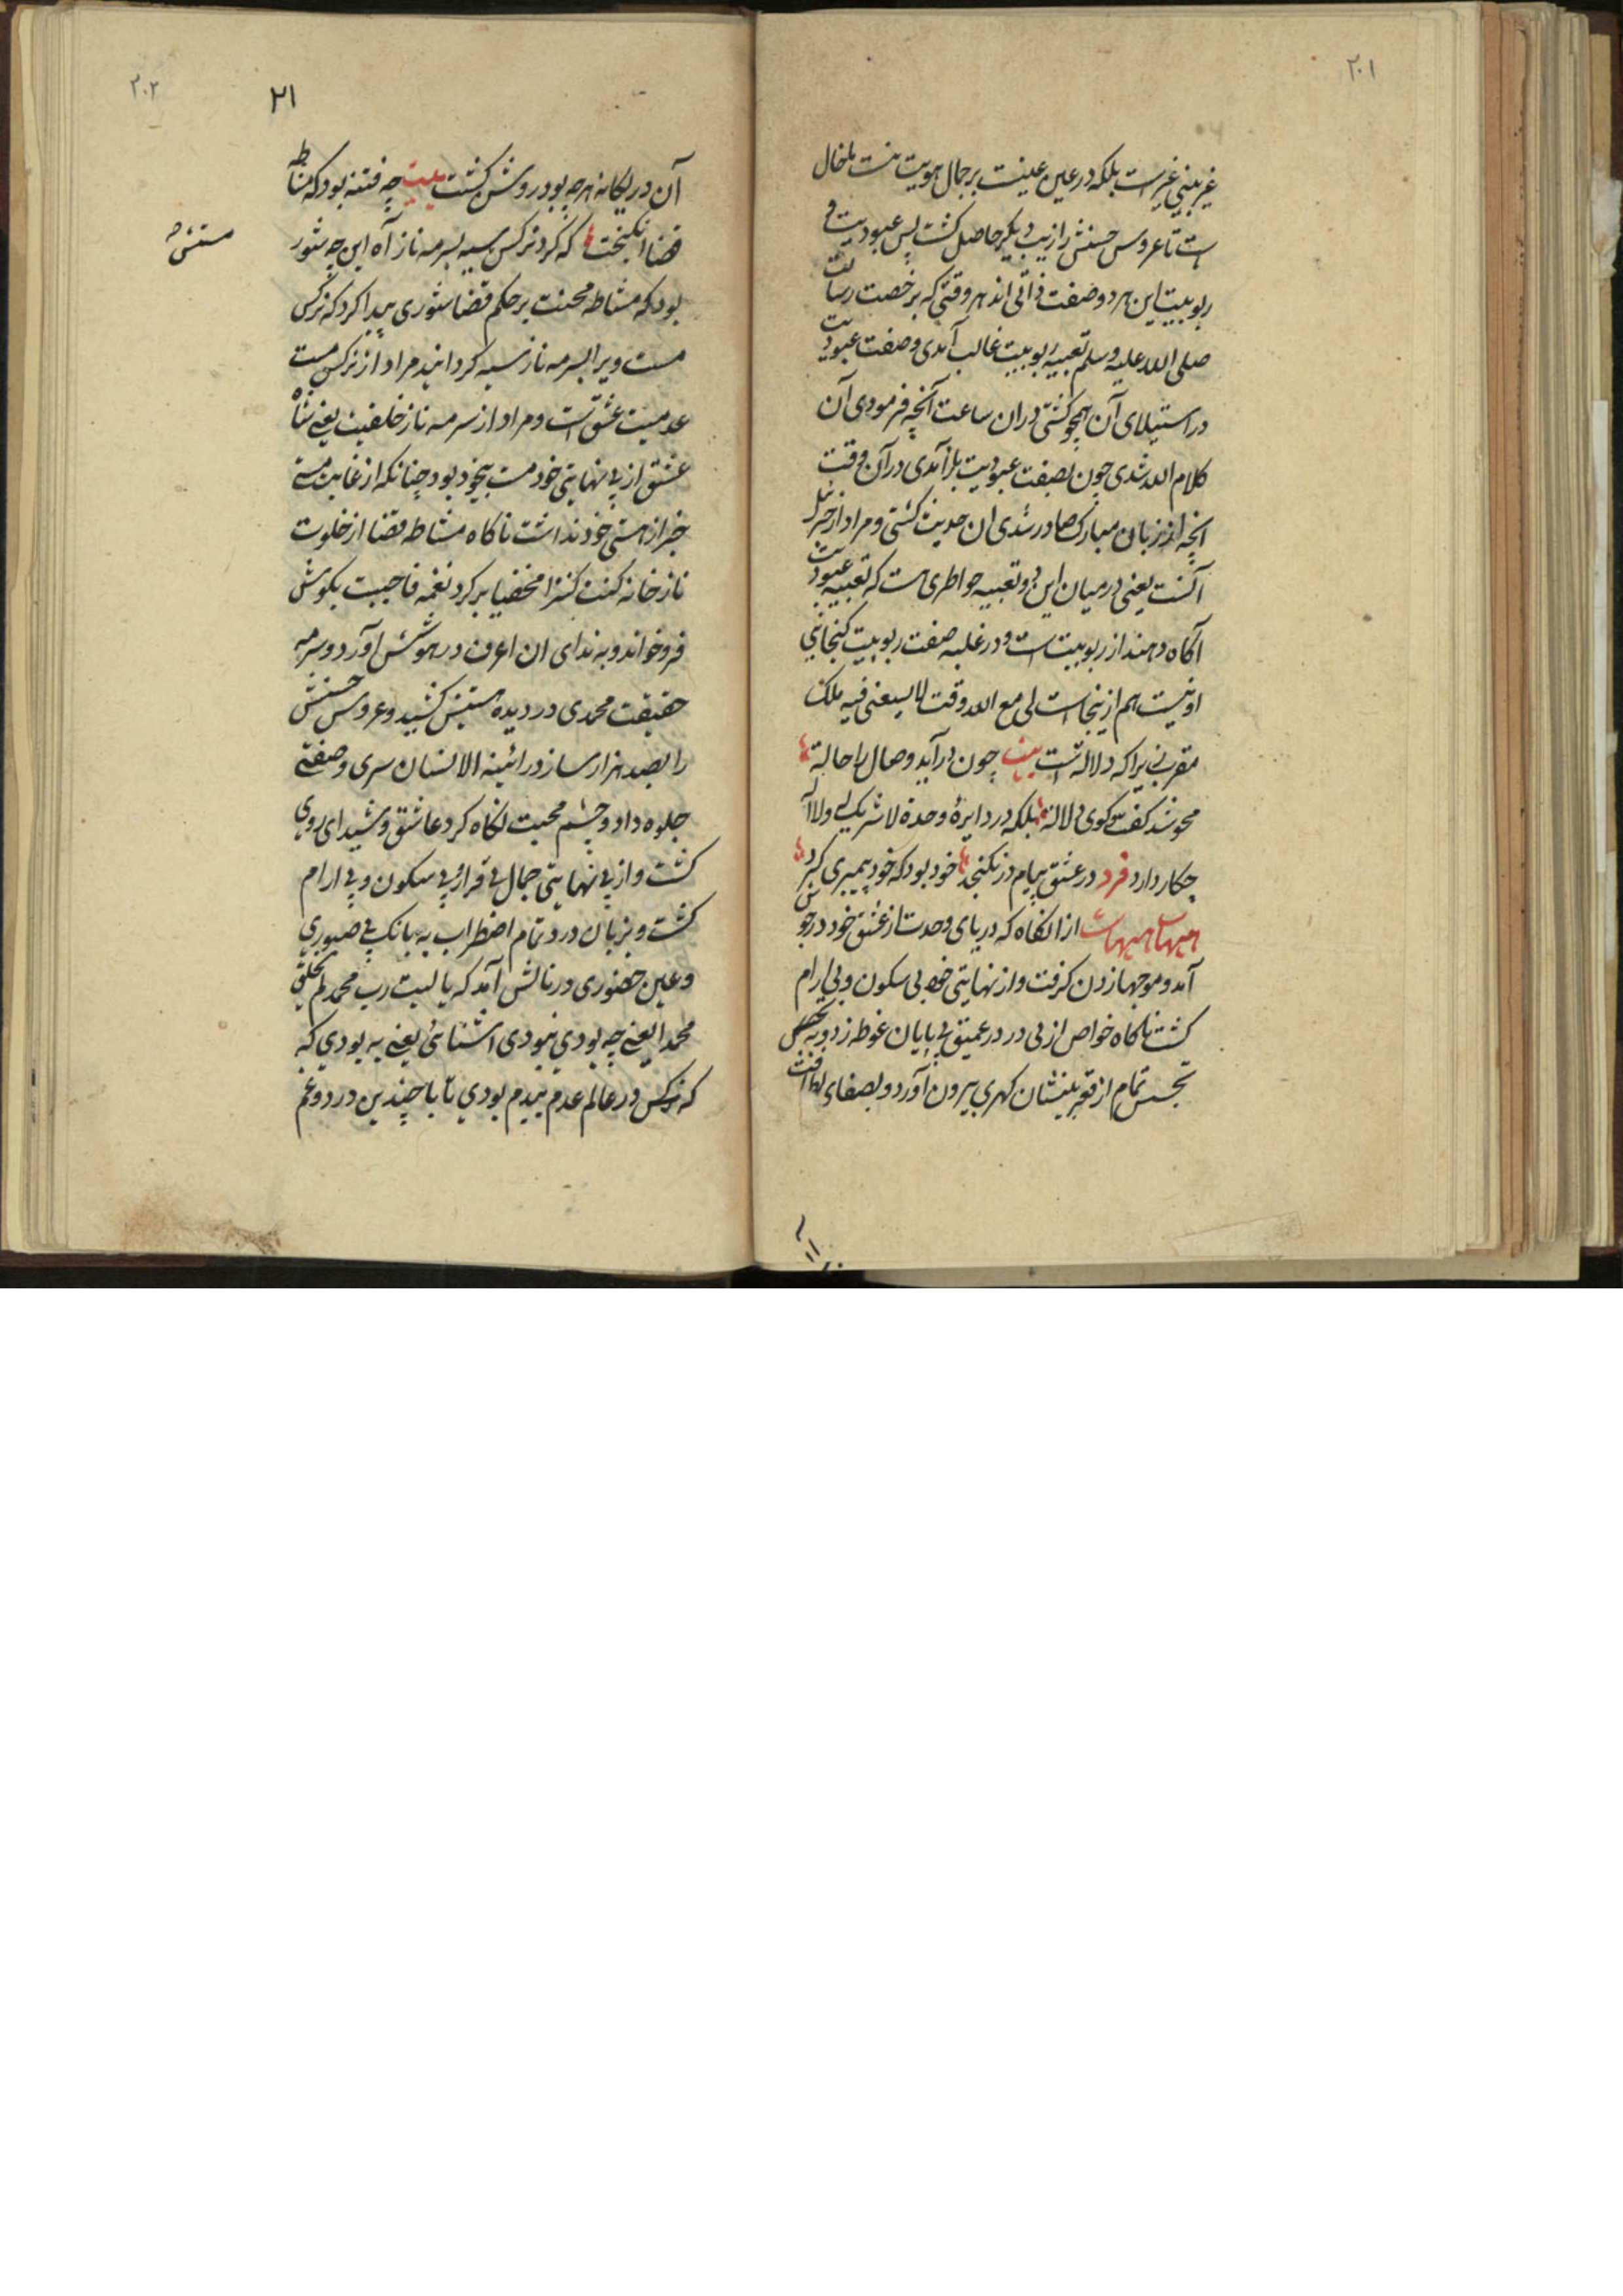 ۲۰۱
غیر بینی غیر است بلکه در عین عینیت بر جمال هویت بنشست بلخال
است تا عروس حسنش را زیب دیگر حاصل گشت پس عبودیت و
ربوبیت این هر دو صفت ذاتی اند هر وقتی که بر خصت رسالت
صلی الله علیه وسلم تعبیه ربوبیت غالب آمدی و صفت عبودیت
در استیلای آن همچو گشتی دران ساعت آنچه فرمودی آن
کلام الله شدی چون بصفت عبودیت باز آمدی در آن وقت
انچه از زبان مبارک صادر شدی ان حدیث گشتی و مراد از جبرئیل
آنست یعنی در میان این دو تعبیه خواطری هست که تعبیه عبودیت
آگاه دهند از ربوبیت است و در غلبه صفت ربوبیت گنجایی
او نیست هم ازینجاست لی مع الله وقت لا یسعنی فیه ملک
مقرب زیرا که دلاله است بیت چون در آید وصال را حاله
محو شد گفت و گوی دلاله بلکه در دایرهٔ وحدهٔ لا شریک له ولا اله
چکار دارد فرد در عشق پیام در نگنجد خود بود که خود پیمبری کرد
هیهات هیهات از انگاه که دریای وحدت از عشق خود در جوش
آمد و موجها زدن گرفت و از نهایتی خود بی سکون و بی ارام
گشت ناگاه خواص ازلی در در عمیق بی پایان غوطه زد و به تفحص
تجسس تمام از قعر بینشان گهری بیرون آورد و بصفاء لطافت
۲۰۲
۲۱
آن در یگانه هر چه بود روشن گشت بیت چه فتنه بود که مشاطه
قضا انگیخت که کرد نرگس سیه بسرمه ناز آه این چه شور
بود که مشاطه محبت بر حکم قضا شوری پیدا کرد که نرگس
مست ویرا بسرمه ناز سیه گردانید مراد از نرگس مست
عدمیت عشق است و مراد از سرمه ناز خلقیت یعنی شاه
عشق از بی نهایتی خود مست بیخود بود چنانکه از غایت مستی
خبر از هستی خود نداشت ناگاه مشاطه قضا از خلوت
ناز خانه کنت کنزا مخفیا بر کرد نغمه فاحببت بگوش
فرو خواند و به ندای ان اعرف در هوشش آورد و سرمه
حقیقت محمدی در دیده هستیش کشید و عروس حسنش
را بصد هزار ساز در ائینه الانسان سری و صفتی
جلوه داد و چشم محبت نگاه کرد عاشق و شیدای روی
گشت و از بی نهایتی جمال بی قرار و بی سکون و بی ارام
گشت و بزبان درد تمام اضطراب به بانگ بی صبوری
و عین حضوری در نالش آمد که یا لیت رب محمد لم یخلق
محمدا یعنی چه بودی نبودی اشنائی یعنی به بودی که
که نرگس در عالم عدم بیدم بودی تا با چندین درد و غم